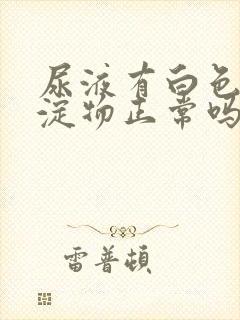 尿液有白色
淀物正常吗
雷普頓